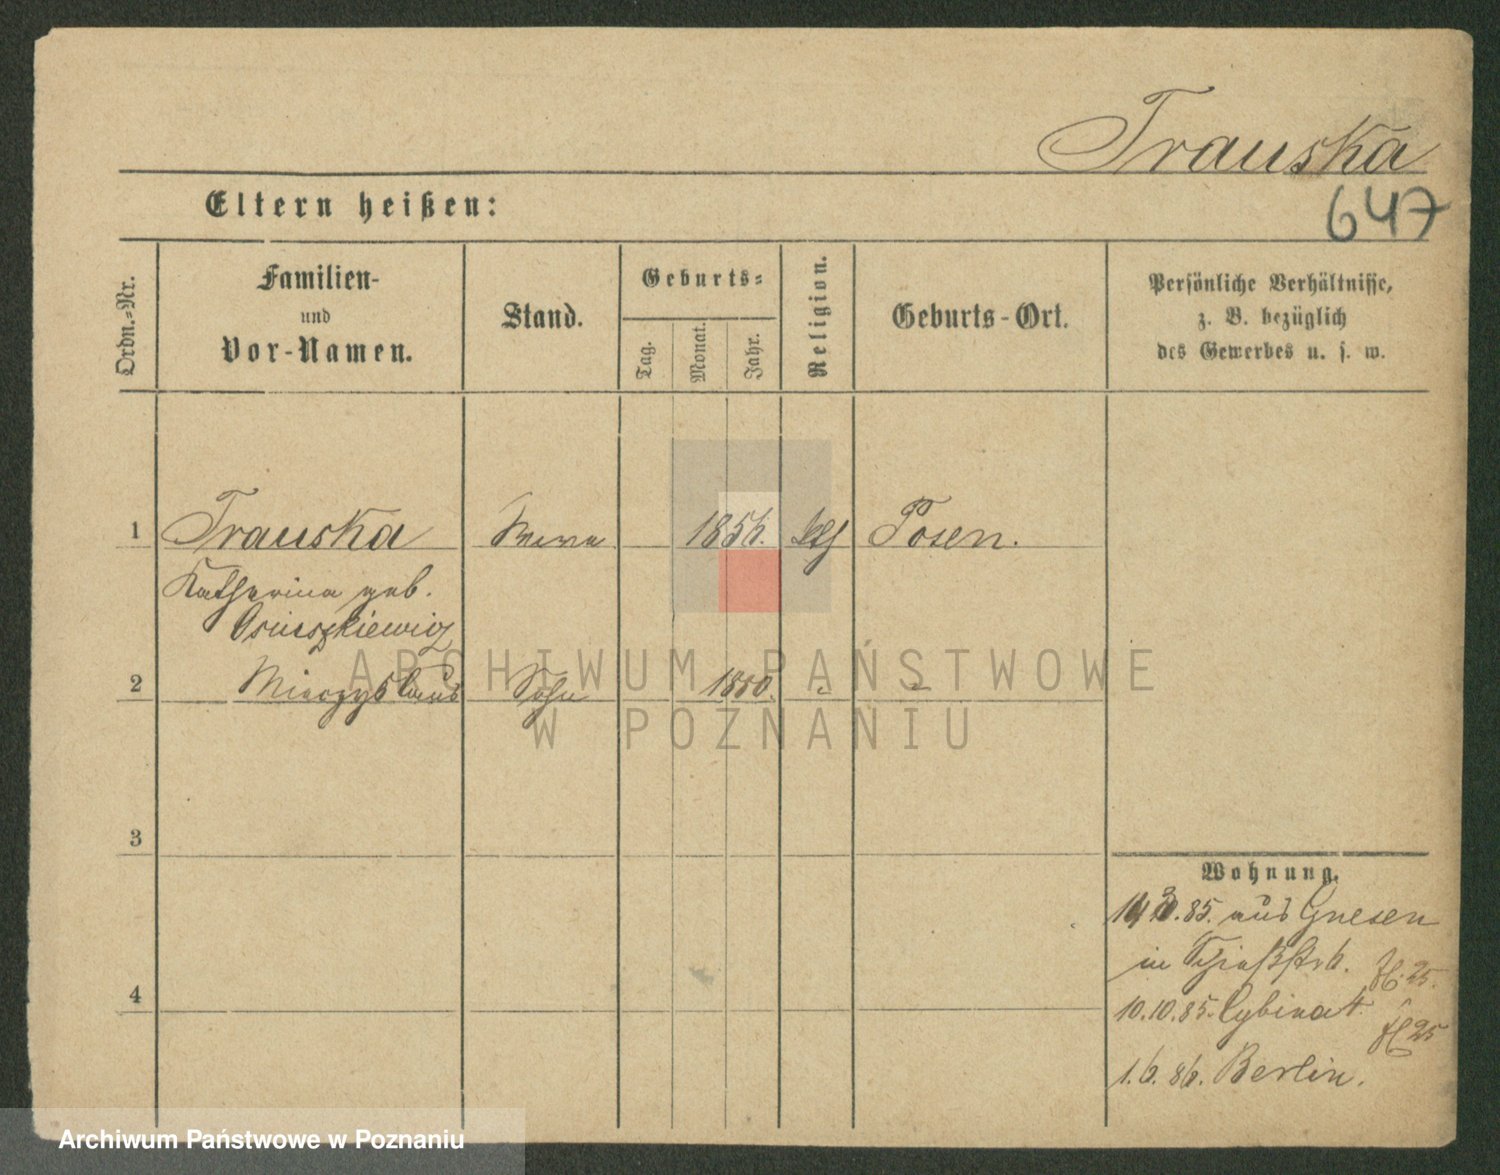 Trauska
647
Eltern heißen:
Ordn.-Nr.
Familien-
und
Vor-Namen.
Stand.
Geburts-
Tag.
Monat.
Jahr.
Religion.
Geburts-Ort.
Persönliche Verhältnisse,
z. B. bezüglich
des Gewerbes u. s. w.
1 Trauska 1856. Posen.
Katharina geb.
Osuszkiewicz
2 Mieczyslaus Sohn
3
4
Wohnung.
.85. aus Gnesen
in Schießstr 6.
10.10.85. Cybinat.
1.6.86. Berlin.
ARCHIWUM PAŃSTWOWE
W POZNANIU
Archiwum Państwowe w Poznaniu